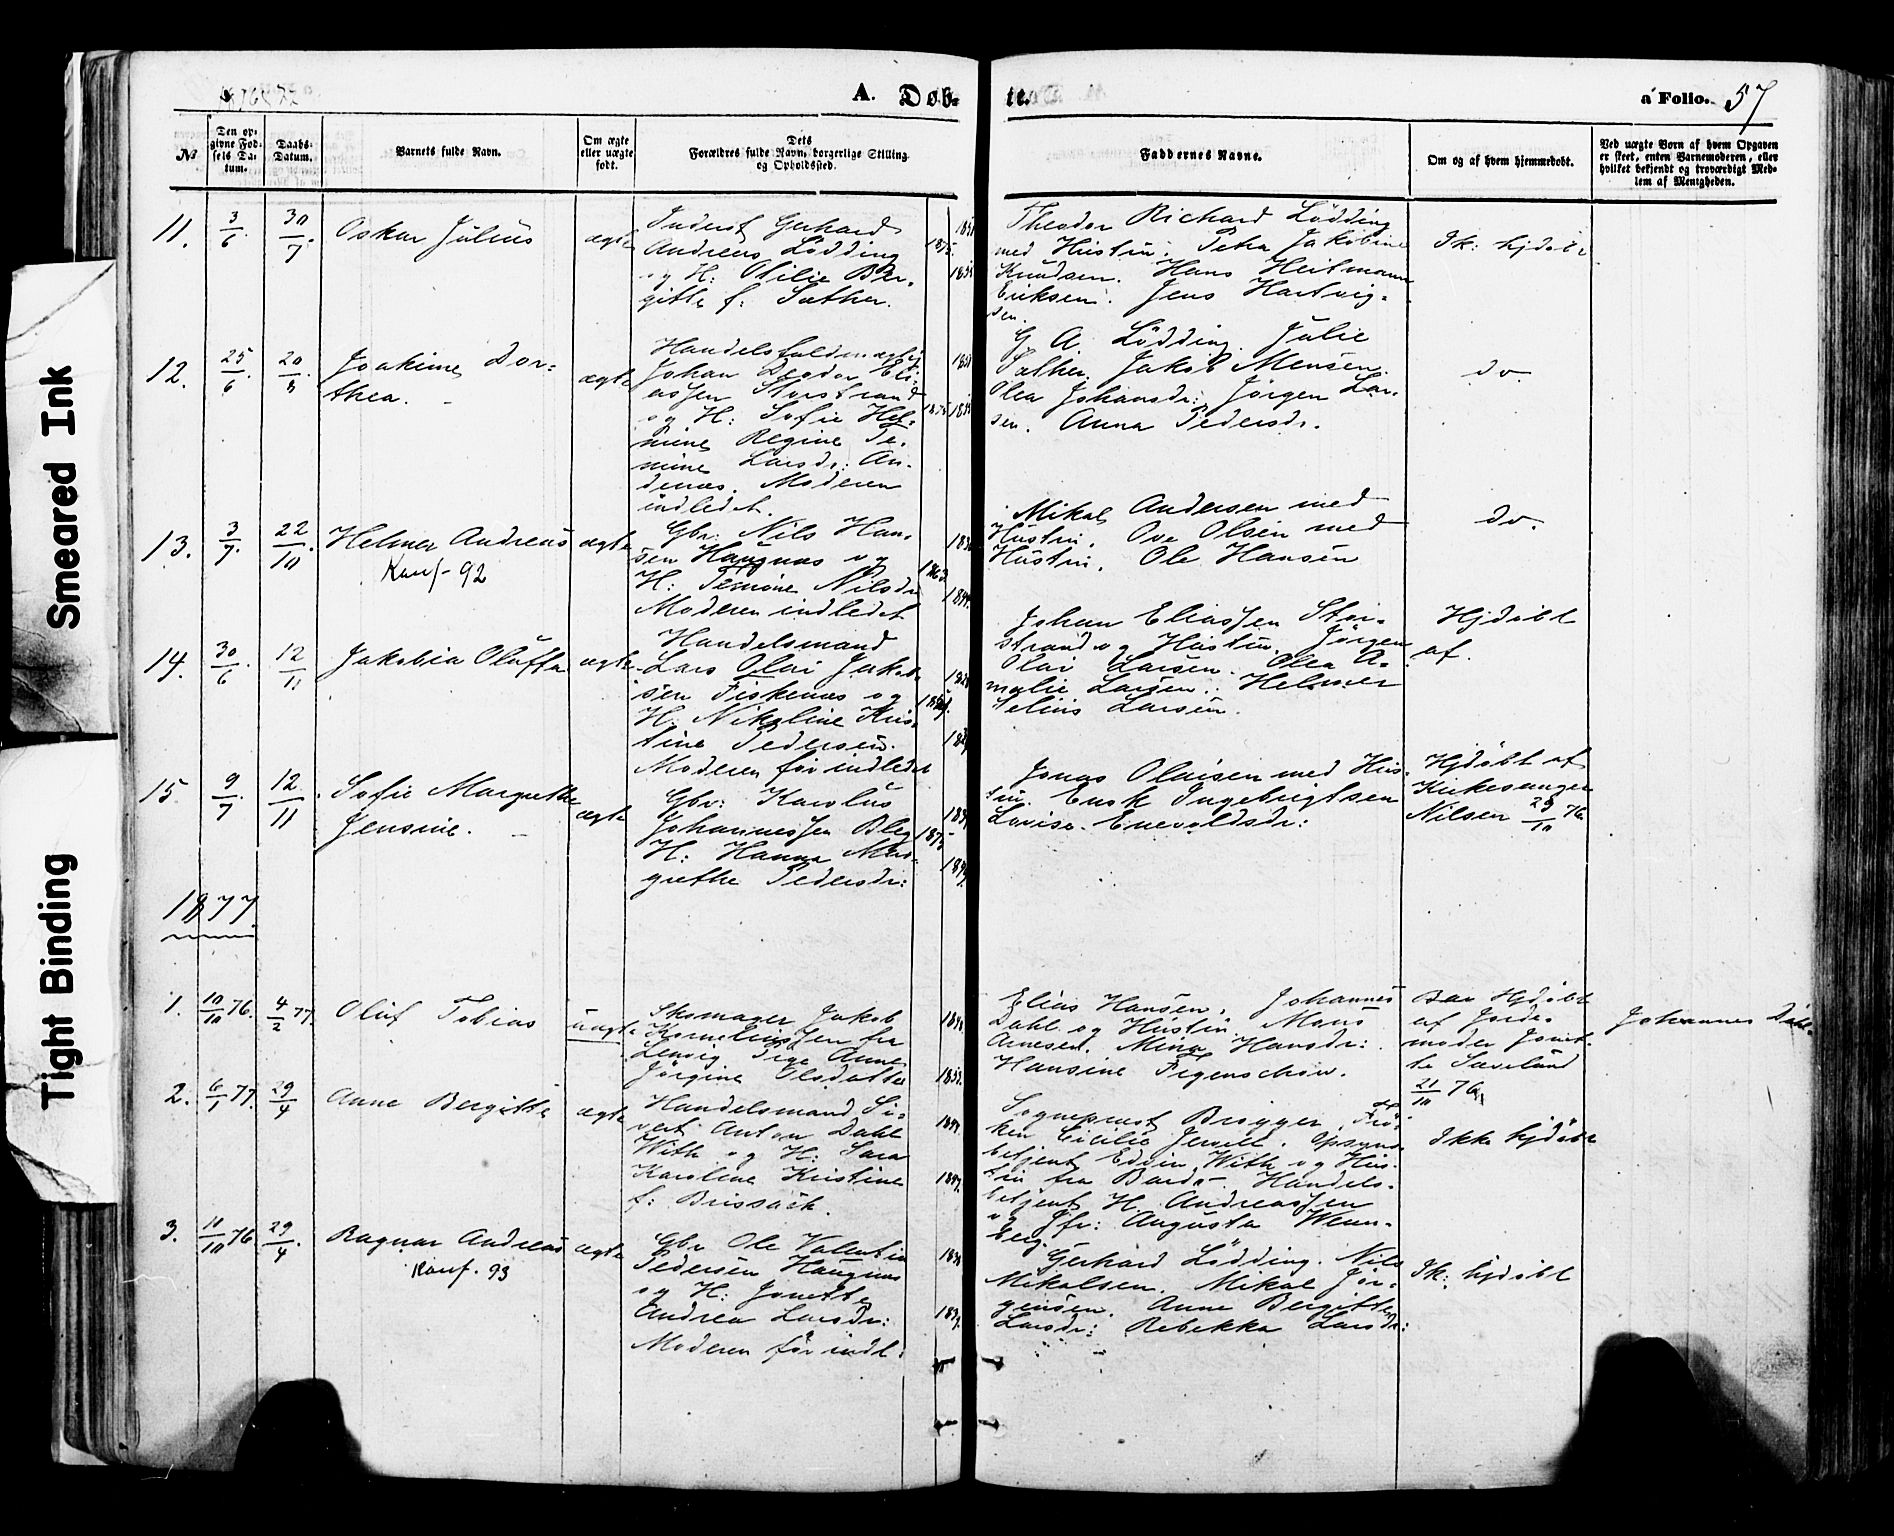 Smeared Ink
Tight Binding
A. Døb-
te.
a Folio. 57
№
Den op-
givne Fød-
sels Da-
tum.
Daabs-
Datum.
Barnets fulde Navn.
Om ægte
eller uægte
født.
Dets
Forældres fulde Navn, borgerlige Stilling
og Opholdssted.
Faddernes Navne.
Om og af hvem hjemmedøbt.
Ved uægte Børn af hvem Opgaven
er skeet, enten Barnemoderen, eller
hvilket bekjendt og troværdigt Med-
lem af Menigheden.
11. 3/6. 30/7. Oskar Julius ægte
Inderst Gerhard
Andreas Lødding
og H: Otilie Ber-
gitte f: Sather.
1875.
Theodor Richard Lödding
med Hustru. Petra Jakobine
Knudsen. Hans Heitmann
Eriksen. Jens Hartvig-
sen.
Ik: hjdøbt
12. 25/6. 20/8. Joakime Dor-
thea.
ægte
Johan Peder Eli-
assen Storstrand
og H: Sofie Hel-
mine Regine Pe-
mine Larsdr: An-
denæs. Moderen
indledet.
G. A. Lödding. Julie
Sather. Jakob Mensen.
Olea Johansdr: Jørgen Lar-
sen. Anna Pedersdr.
do.
13. 3/7. 22/10. Helmer Andreas ægte
Konf- 92
Gbr. Nils Han-
sen Haugnæs og
H: Nilsdr
Moderen indledet
1863.
Mikal Andersen med
Hustru. Ove Olsen med
Hustru. Ole Hansen
do.
14. 30/6. 12/11. Jakobia Oluffa ægte
Handelsmand
Lars Olai Jakob-
sen Fiskenæs og
H. Nikoline Kris-
tine Pedersen.
Moderen før indledet
Johan Eliassen Stor-
strand og Hustru. Jørgen
Olai Larsen. Olea A-
malie Larsen. Helmer
Selius Larsen.
Hjdøbt
af.
15. 9/7. 12/11. Sofie Margrethe
Jensine.
ægte
Gbr: Karolus
Johannessen Bleg
H: Hanna Mar-
grethe Pedersdr:
1875
Jonas Olaisen med Hus-
tru. Ensk Ingebrigtsen
Lovise Enevoldsdr:
Hjdøbt af
Kirkesanger
Nilsen 29/10 76.
1877
1. 10/10 76. 4/2 77. Oluf Tobias uægte
Skomager Jakob
Korneliussen fra
Lenvig Pige Anne
Jørgine Olsdatter
Elias Hansen. Johannes
Dahl og Hustru. Mons
Arnesen. Mina Hansdr:
Hansine Figenschow.
Bar Hjdøbt
af Jorde-
moder Jonet-
te Saveland
21/10 76
Johannes Dahl.
2. 6/1 77. 29/4 Anne Bergitte ægte
Handelsmand Si-
vert Anton Dahl
With og H: Sara
Karoline Kristine
f: Brissach.
Sogneprest Brøgger, Frø-
ken Cicilie Jersett. Opsyns-
betjent Edvin With og Hus-
tru fra Bardo. Handels-
betjent H. Andreassen
og Jfr: Augusta Wenn-
berg.
Ikke hjdøbt
3. 10/10 76. 29/4. Ragnar Andreas ægte
Konf. 93
Gbr Ole Valentin
Pedersen Haugnæs
og H: Jonette
Andrea Larsdr:
Moderen før indl:
Gerhard Lödding. Nils
Mikalsen. Mikal Jør-
gensen. Anne Bergitte
Larsdr: Rebekka Larsdr:
Ik: hjdøbt